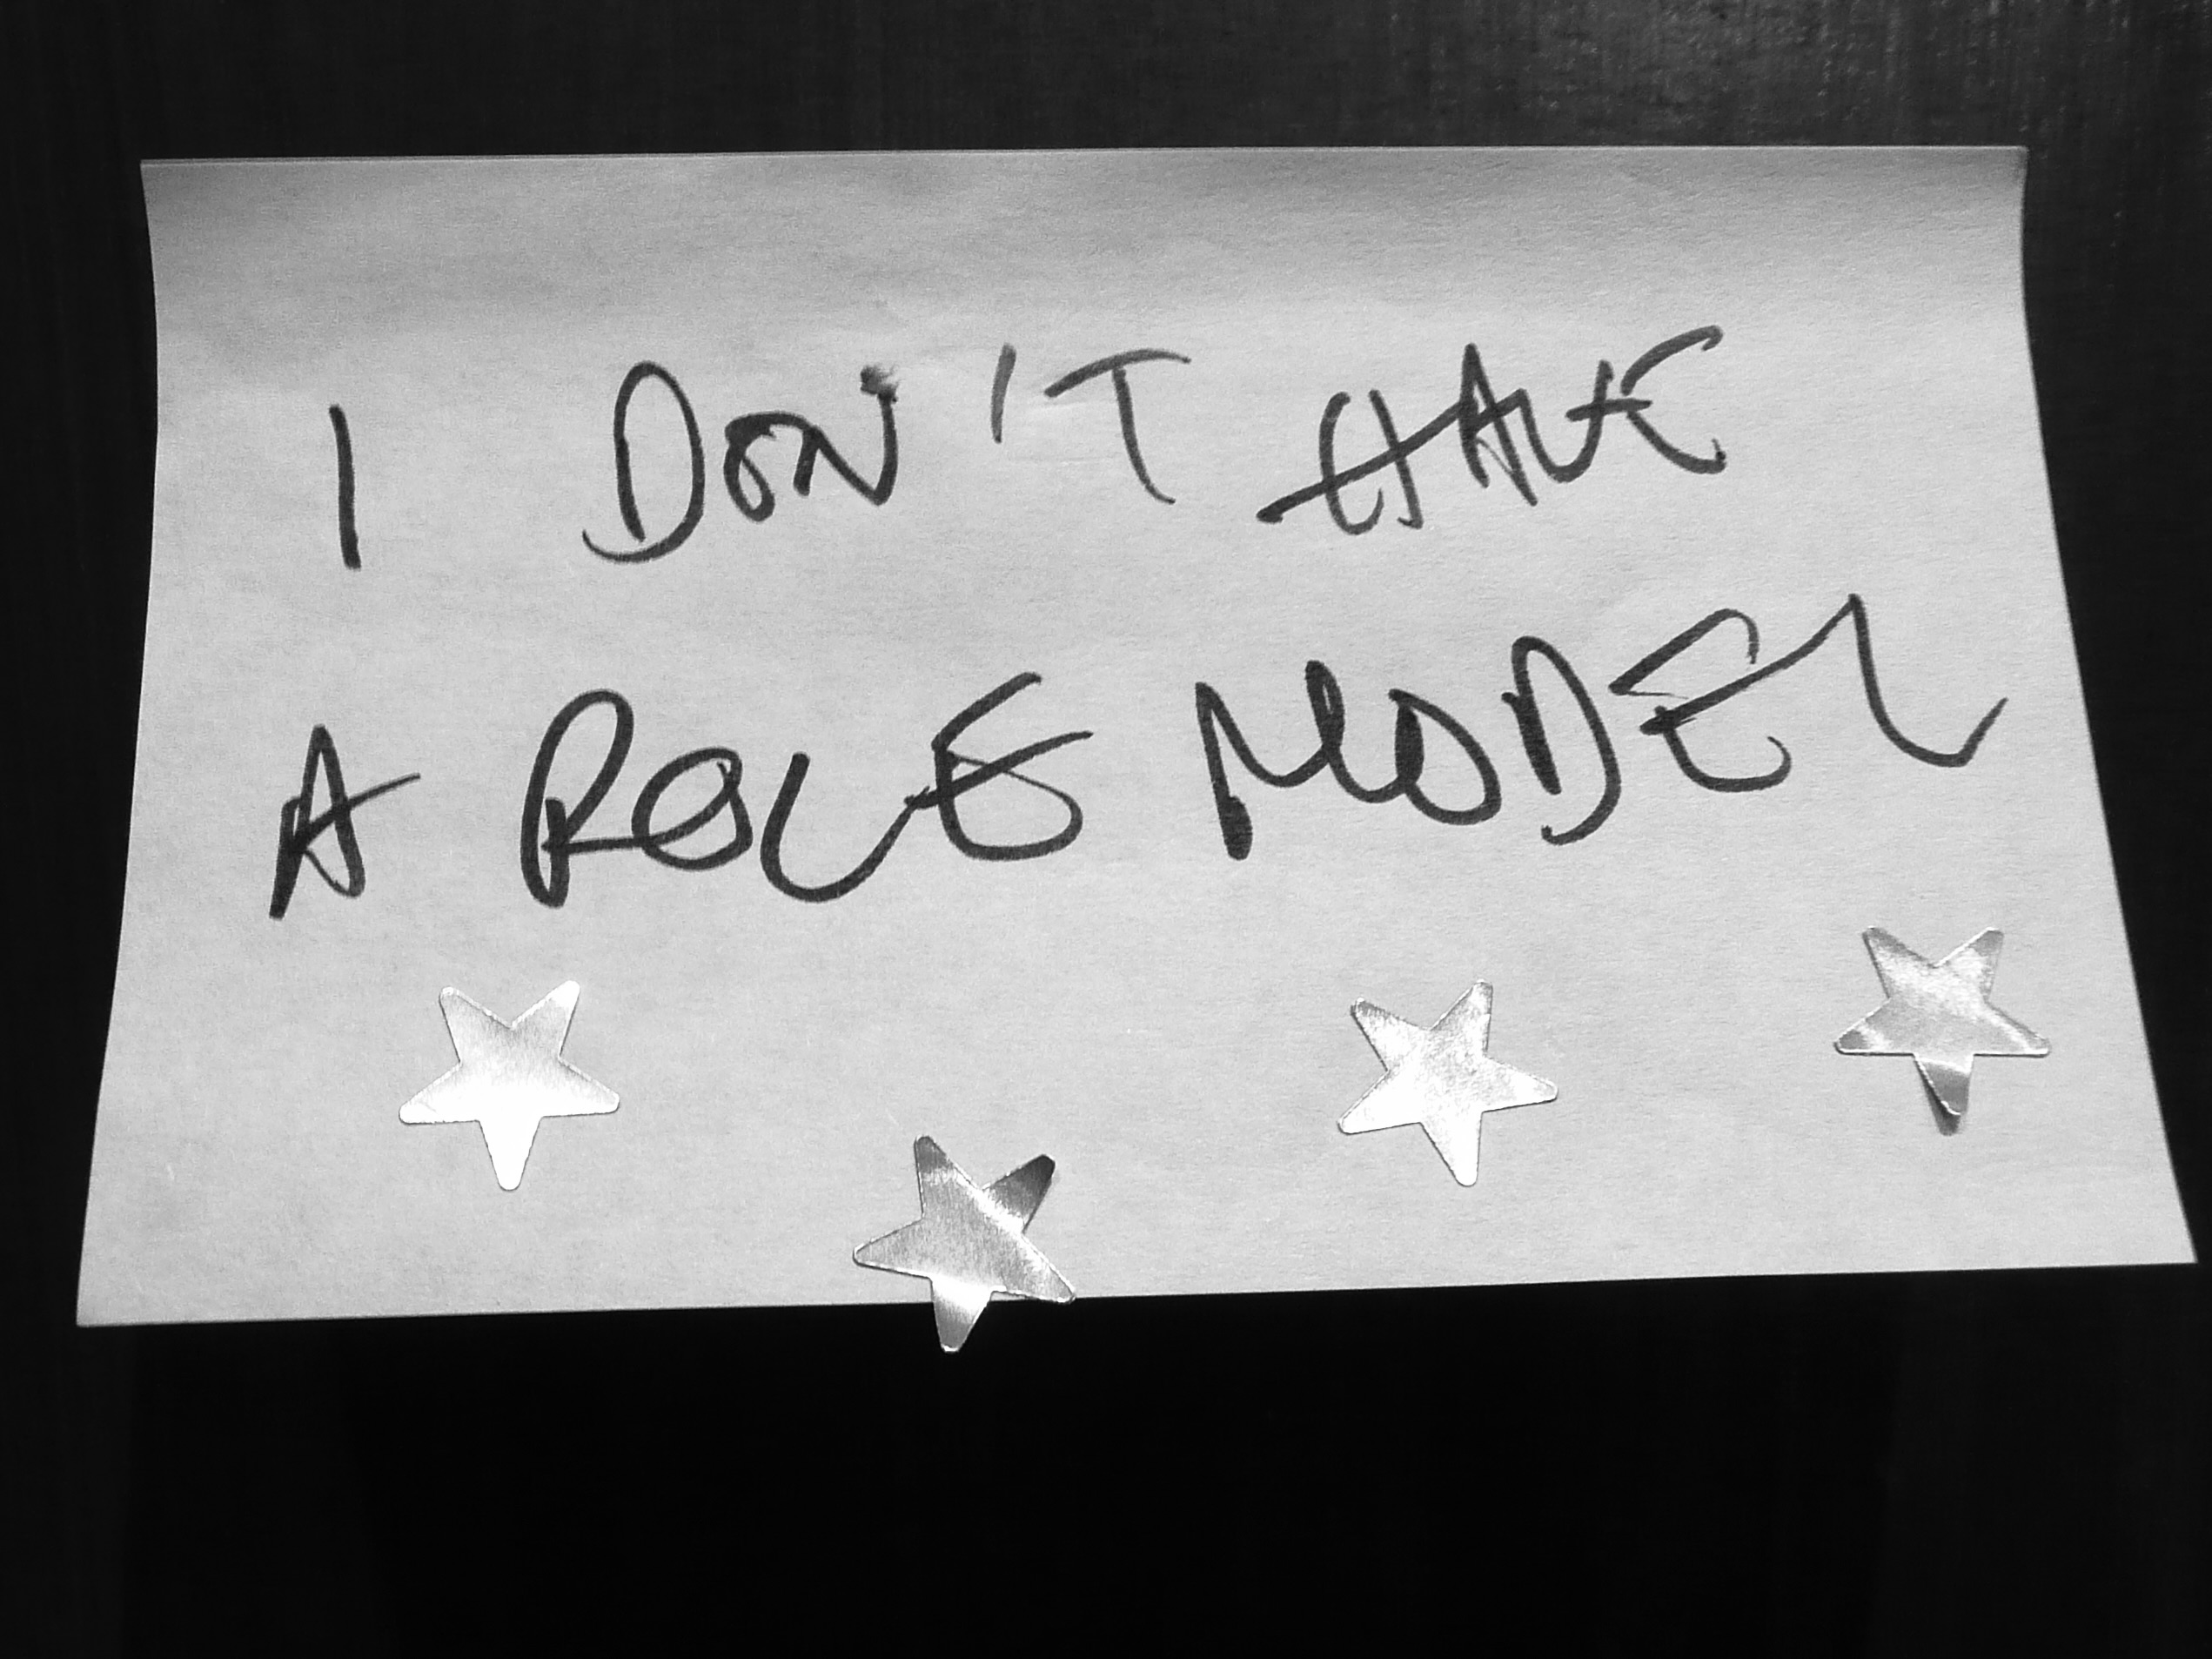 I DON'T HAVE
A ROLE MODEL